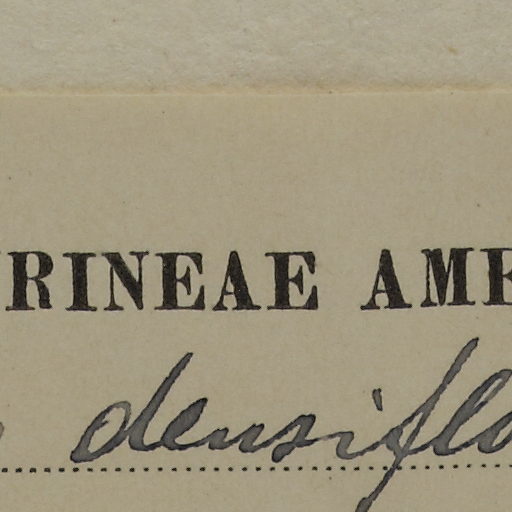 RINEAE AME
densiflo